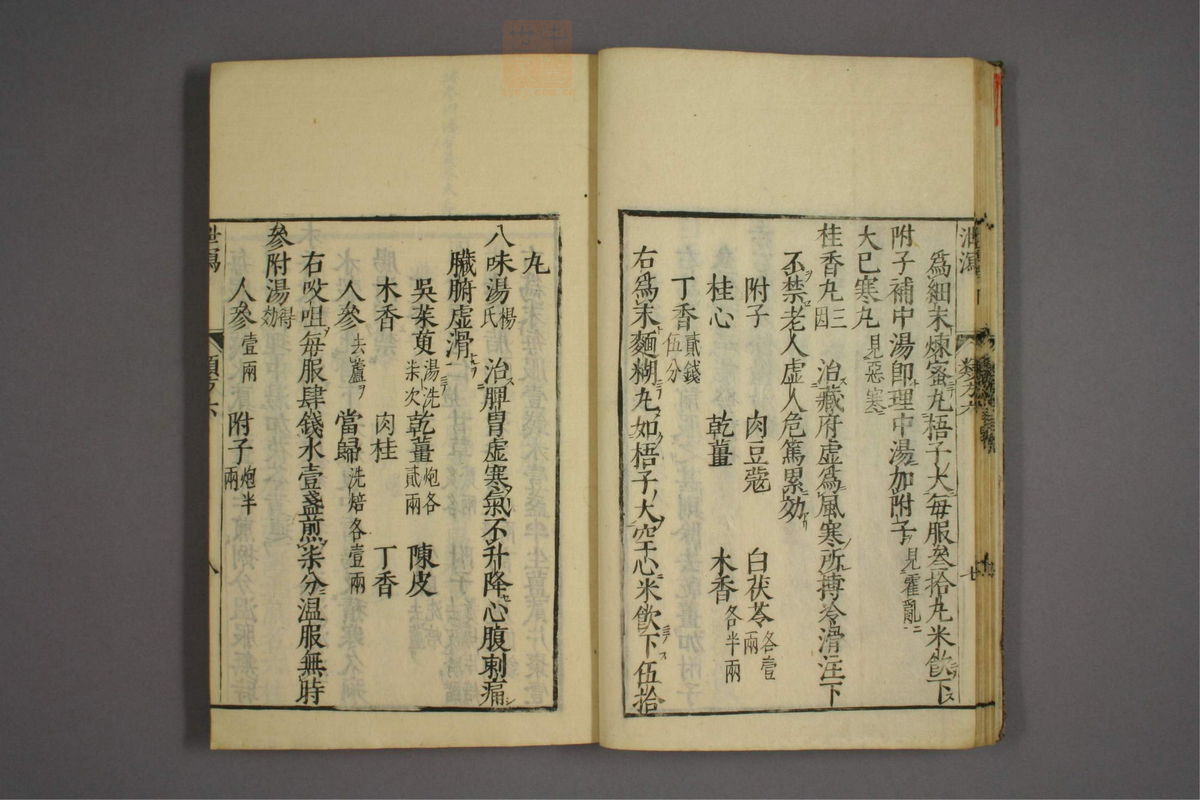 爲細末煉蜜丸梧子大毎服叄拾丸米飲下
附子補中湯即理中湯加附子見霍亂ニ
大巳寒丸見惡寒ニ
桂香丸三因 治藏府虚爲風寒所搏冷滑注下
不禁老人虚人危篤累効
附子 肉豆蔻 白茯苓各壹兩
桂心 乾薑 木香各半兩
丁香貳錢伍分
右爲末麵糊丸如梧子大空心米飲下伍拾
丸
八味湯楊氏 治脾胃虚寒氣不升降心腹刺痛
臟腑虚滑
吳茱萸湯洗柒次 乾薑炮各貳兩 陳皮
木香 肉桂 丁香
人參去蘆 當歸洗焙各壹兩
右㕮咀毎服肆錢水壹盞煎柒分温服無時
參附湯得効
人參壹兩 附子炮半兩
八